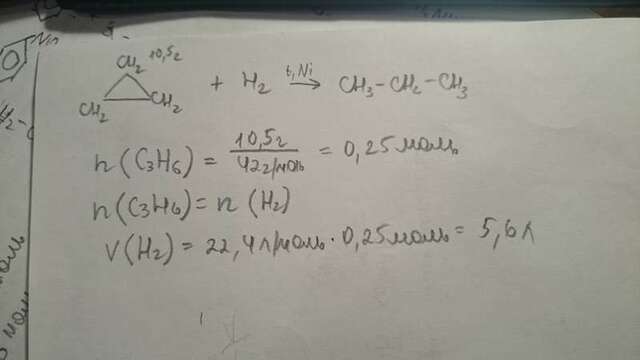 CH2 10,5г
CH2 CH2 + H2 t,Ni → CH3-CH2-CH3
n(C3H6) = 10,5г / 42г/моль = 0,25 моль
n(C3H6) = n(H2)
V(H2) = 22,4 л/моль · 0,25 моль = 5,6 л
оль
моль